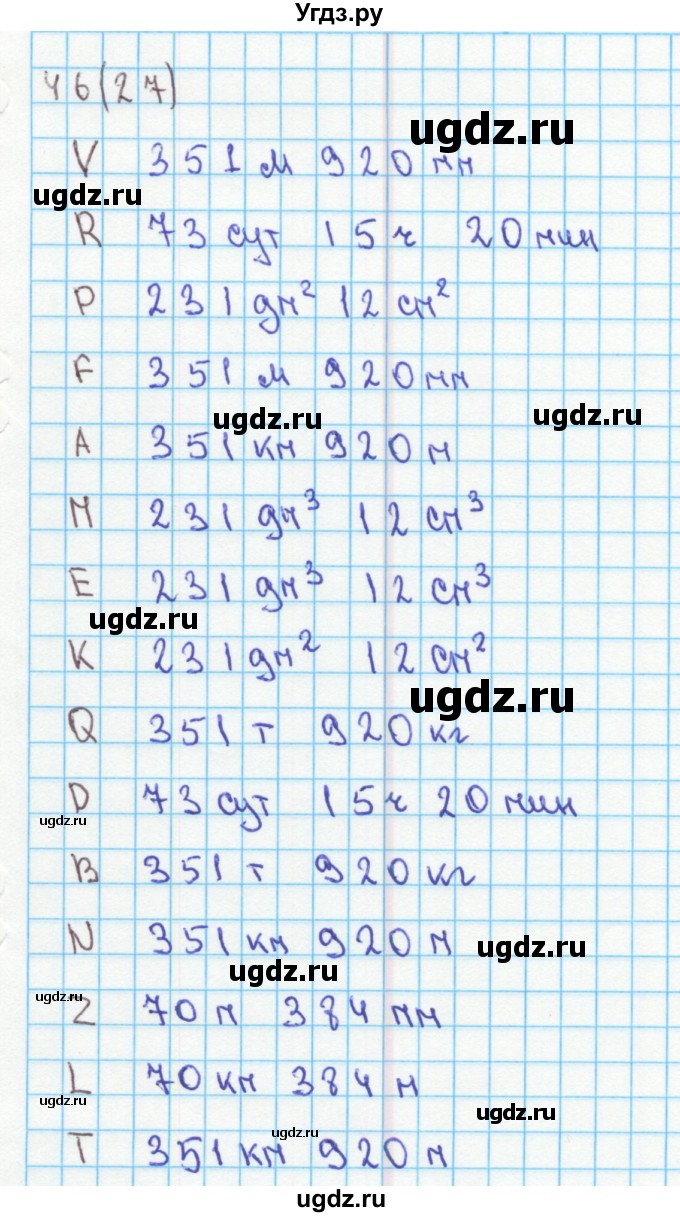 Угдз.ру
46(27)
ugdz.ru
V 351 м 920 мм
ugdz.ru
R 73 сут 15 ч 20 мин
P 231 дм² 12 см²
F 351 м 920 мм
ugdz.ru
ugdz.ru
A 351 км 920 м
M 231 дм³ 12 см³
E 231 дм³ 12 см³
ugdz.ru
K 231 дм² 12 см²
ugdz.ru
Q 351 т 920 кг
D 73 сут 15 ч 20 мин
ugdz.ru
B 351 т 920 кг
N 351 км 920 м
ugdz.ru
ugdz.ru
ugdz.ru
Z 70 м 384 мм
L 70 км 384 м
ugdz.ru
ugdz.ru
ugdz.ru
T 351 км 920 м
ugdz.ru